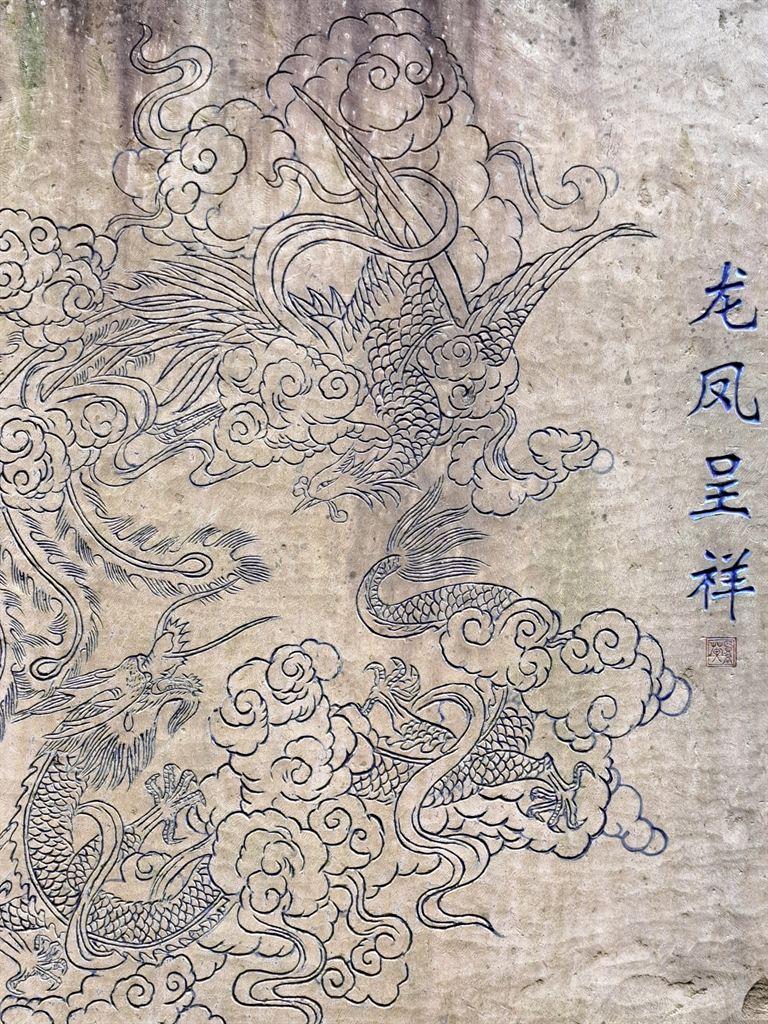 龙凤呈祥